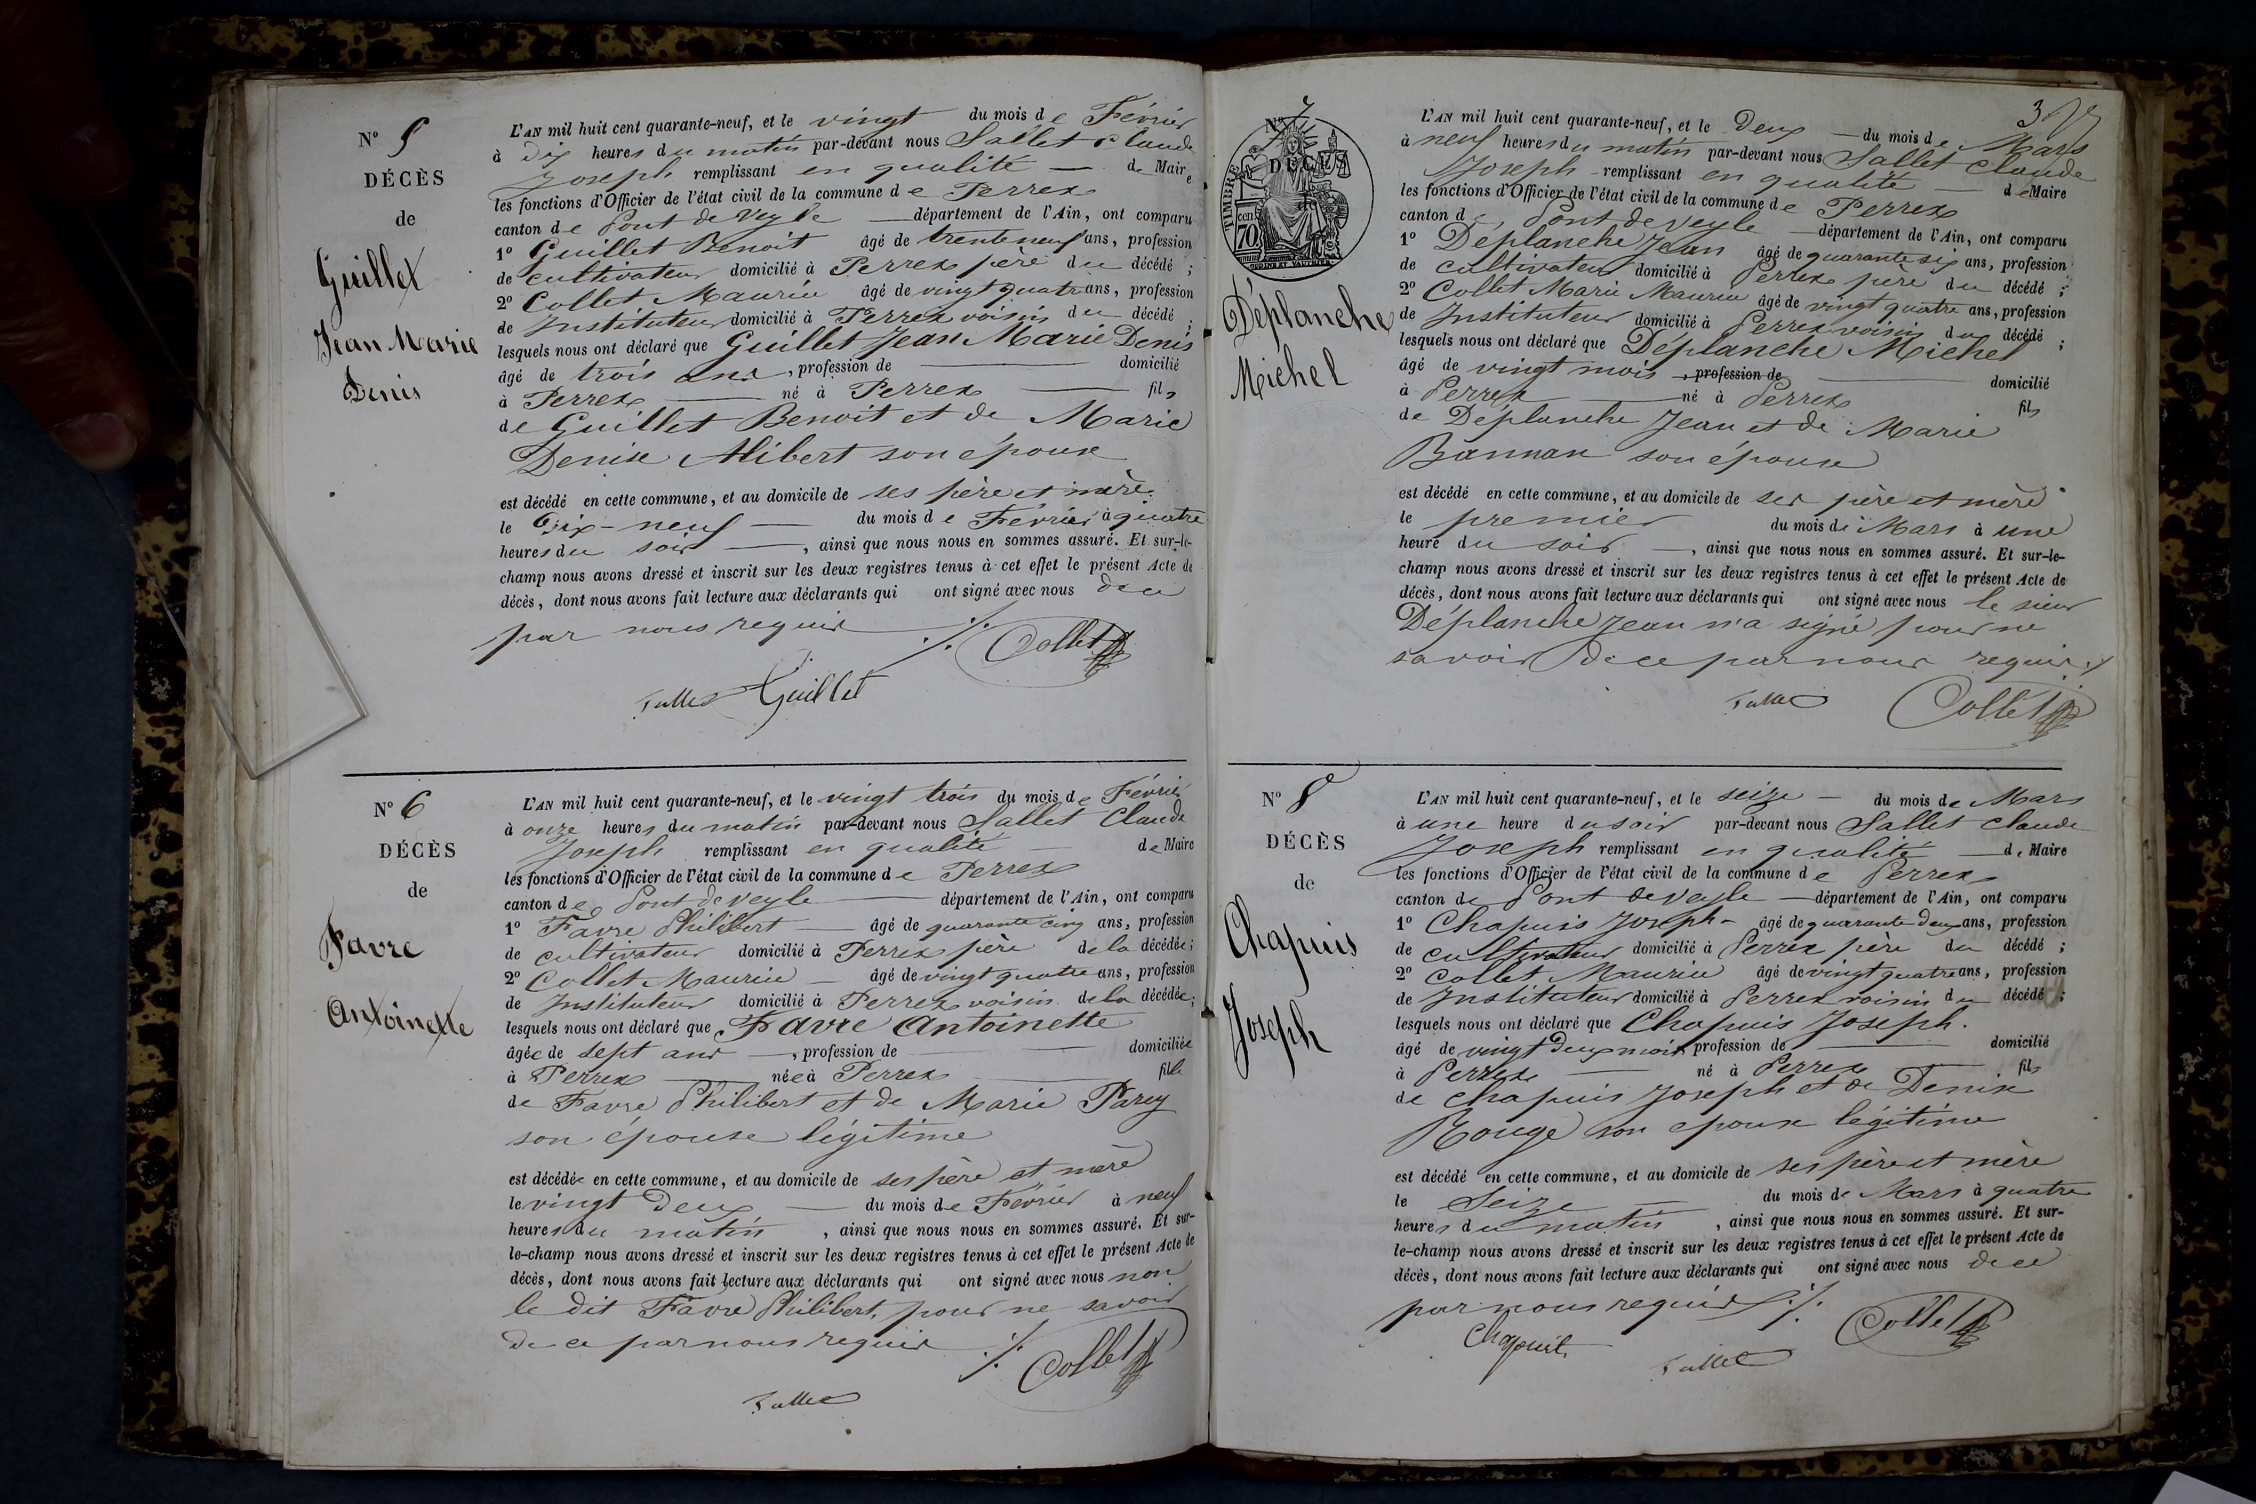 N° 5
DÉCÈS
de
Guillet
Jean Marie
Denis
L'AN mil huit cent quarante-neuf, et le vingt du mois de Février
à dix heures du matin par-devant nous Sallet Claude
Joseph remplissant en qualité — de Maire
les fonctions d'Officier de l'état civil de la commune de Perrex
canton de Pont de Veyle — département de l'Ain, ont comparu
1° Guillet Benoit âgé de trente neuf ans, profession
de cultivateur domicilié à Perrex père du décédé ;
2° Collet Maurice âgé de vingt quatre ans, profession
de Instituteur domicilié à Perrex voisin du décédé ;
lesquels nous ont déclaré que Guillet Jean Marie Denis
âgé de trois ans, profession de — domicilié
à Perrex — né à Perrex — fils
de Guillet Benoit et de Marie
Denise Alibert son épouse
est décédé en cette commune, et au domicile de ses père et mère
le Dix-neuf — du mois de Février à quatre
heures du soir —, ainsi que nous nous en sommes assuré. Et sur-le-
champ nous avons dressé et inscrit sur les deux registres tenus à cet effet le présent Acte de
décès, dont nous avons fait lecture aux déclarants qui ont signé avec nous de ce
par nous requis ./.
Collet
Sallet Guillet
N° 6
DÉCÈS
de
Favre
Antoinette
L'AN mil huit cent quarante-neuf, et le vingt trois du mois de Février
à onze heures du matin par-devant nous Sallet Claude
Joseph remplissant en qualité — de Maire
les fonctions d'Officier de l'état civil de la commune de Perrex
canton de Pont de Veyle — département de l'Ain, ont comparu
1° Favre Philibert — âgé de quarante cinq ans, profession
de cultivateur domicilié à Perrex père de la décédée ;
2° Collet Maurice — âgé de vingt quatre ans, profession
de Instituteur domicilié à Perrex voisin de la décédée ;
lesquels nous ont déclaré que Favre Antoinette
âgée de sept ans —, profession de — domiciliée
à Perrex — née à Perrex — fille
de Favre Philibert et de Marie Parey
son épouse légitime
est décédée en cette commune, et au domicile de ses père et mère
le vingt Deux — du mois de Février à neuf
heures du matin, ainsi que nous nous en sommes assuré. Et sur-
le-champ nous avons dressé et inscrit sur les deux registres tenus à cet effet le présent Acte de
décès, dont nous avons fait lecture aux déclarants qui ont signé avec nous non
le dit Favre Philibert, pour ne savoir
de ce par nous requis ./.
Collet
Sallet
3
N° 7
DÉCÈS
de
TIMBRE
70 cen
Déplanche
Michel
L'AN mil huit cent quarante-neuf, et le Deux — du mois de Mars
à neuf heures du matin par-devant nous Sallet Claude
Joseph remplissant en qualité — de Maire
les fonctions d'Officier de l'état civil de la commune de Perrex
canton de Pont de Veyle — département de l'Ain, ont comparu
1° Déplanche Jean âgé de quarante six ans, profession
de cultivateur domicilié à Perrex père du décédé ;
2° Collet Marie Maurice âgé de vingt quatre ans, profession
de Instituteur domicilié à Perrex voisin du décédé ;
lesquels nous ont déclaré que Déplanche Michel
âgé de vingt mois, profession de — domicilié
à Perrex — né à Perrex fils
de Déplanche Jean et de Marie
Bannan son épouse
est décédé en cette commune, et au domicile de ses père et mère
le premier du mois de Mars à une
heure du soir —, ainsi que nous nous en sommes assuré. Et sur-le-
champ nous avons dressé et inscrit sur les deux registres tenus à cet effet le présent Acte de
décès, dont nous avons fait lecture aux déclarants qui ont signé avec nous le sieur
Déplanche Jean n'a signé pour ne
savoir de ce par nous requis ./.
Sallet Collet
N° 8
DÉCÈS
de
Chapuis
Joseph
L'AN mil huit cent quarante-neuf, et le seize — du mois de Mars
à une heure du soir par-devant nous Sallet Claude
Joseph remplissant en qualité — de Maire
les fonctions d'Officier de l'état civil de la commune de Perrex
canton de Pont de Veyle — département de l'Ain, ont comparu
1° Chapuis Joseph - âgé de quarante deux ans, profession
de cultivateur domicilié à Perrex père du décédé ;
2° Collet Maurice âgé de vingt quatre ans, profession
de Instituteur domicilié à Perrex voisin du décédé ;
lesquels nous ont déclaré que Chapuis Joseph.
âgé de vingt deux mois profession de — domicilié
à Perrex — né à Perrex — fils
de Chapuis Joseph et de Denise
Rouge son epouse légitime
est décédé en cette commune, et au domicile de ses père et mère
le Seize — du mois de Mars à quatre
heures du matin, ainsi que nous nous en sommes assuré. Et sur-
le-champ nous avons dressé et inscrit sur les deux registres tenus à cet effet le présent Acte de
décès, dont nous avons fait lecture aux déclarants qui ont signé avec nous de ce
par nous requis ./.
Chapuis Sallet Collet